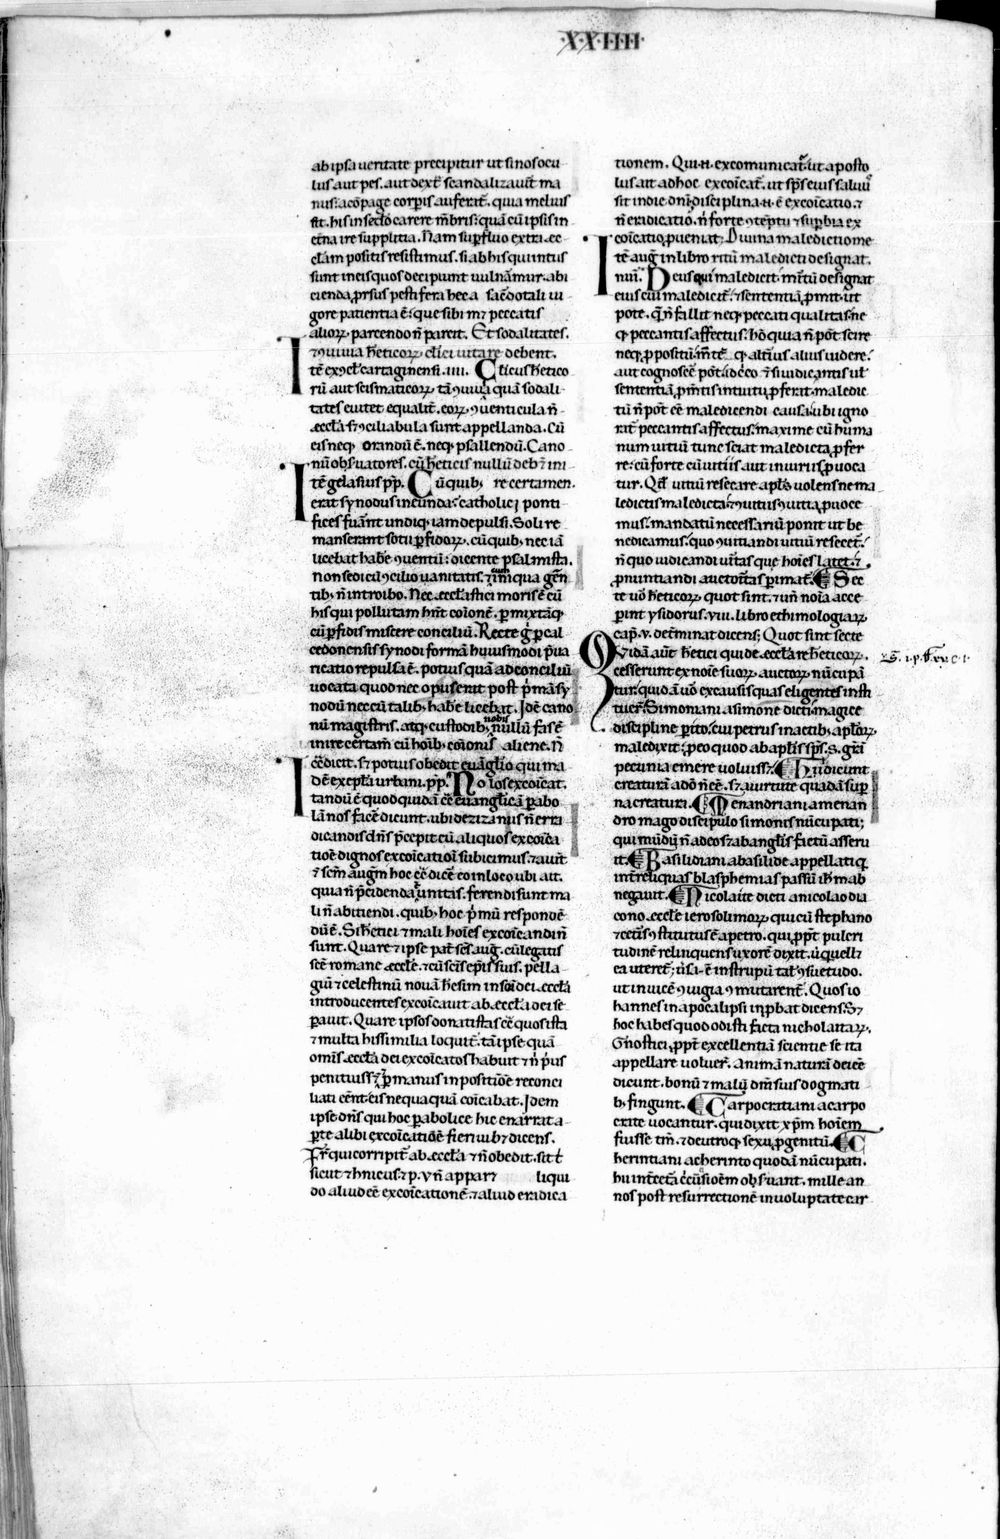 ·XXIIII·
ab ipsa ueritate precipitur ut si nos ocu
lus aut pes. aut dext̄ scandalizauit̄ ma
nus: a cōpage corꝑis auferat̄. quia melius
est. his in sc̄lo carere m̄bris: quā cū ipsis in
et̄na ire supplitia. Nam suꝑfluo extra ec
cl̄am positis resistimus. si ab his qui intus
sunt in eis quos decipiunt uulnāmur. abi
cienda ꝓrsus pestifera hec a sac̄dotali ui
gore patientia ē: que sibi ⁊ peccatis
alioꝝ parcendo n̄ parcit. Et sodalitates.
⁊ ꝯuiuia h̄eticoꝝ cl̄ici uitare debent.
Itē ex ꝯcl̄. cartaginensi .iiii. Cl̄icus h̄etico
rū aut scismaticoꝝ tā ꝯuiuia quā sodali
tates euitet equalit̄. eoꝝ ꝯuenticula n̄
eccl̄a sꝫ ꝯciliabula sunt appellanda. Cū
eis neqꝫ orandū ē. neqꝫ psallendū. Cano
nū obs̄uatores. cū h̄eticis nullū debꝫ ini
Itē gelasius pp̄. Cū quibꝫ re certamen.
erat synodus ineunda: catholici ponti
fices fuāint undiqꝫ iam depulsi. Soli re
manserant sotii ꝑfidoꝝ. cū quibꝫ nec iā
licebat habe᷑ ꝯuentū: dicente psalmista.
non sedi cū ꝯcilio uanitatis. ⁊ cum iniqua gerē
tibꝫ n̄ introibo. Nec eccl̄astici moris ē cū
his qui pollutam hn̄t cōionē. ꝑmixtāqꝫ
cū ꝑfidis miscere conciliū. Recte ḡ ꝑ cal
cedonensis synodi formā huiusmodi p̄ua
ricatio repulsa ē. potius quā ad conciliū
uocata quod nec opus erat post p̄mā sy
nodū nec cū talibꝫ habe᷑ licebat. Idē cano
nū magistris. atqꝫ custodibꝫ nobis nullū fas ē
inire certam̄ cū hōibꝫ cōionis aliene. Ñ
c̄cedicit. sꝫ potius obedit euāglio qui ma
Idē exempla urbani. pp̄. No los excoīcat.
tandū ē quod quidā c̄e euanglicā ꝑabo
lā nos face᷑ dicunt. ubi de zizanus n̄ erra
dicandis dn̄s p̄cepit cū aliquos excoīca
tiōe dignos excoīcationi subicimus. ⁊ aut̄
⁊ sc̄m augm̄ hoc c̄e dice᷑ eo in loco ubi ait.
quia n̄ p̄cidenda unitas. ferendi sunt ma
li n̄ abitiendi. quibꝫ hoc p̄mū respondē
dū ē. Si h̄etici ⁊ mali hoīes excoīcandi n̄
sunt. Quare ⁊ ipse pat̄ sc̄s auḡ. cū legatis
sc̄e romane eccl̄e. ⁊ cū sc̄is ep̄is suis. pella
giū ⁊ celestinū nouā h̄esim in sc̄ā dei eccl̄ā
introducentes excoīcauit ab eccl̄a dei se
ꝑauit. Quare ipsos donatistas c̄e quos ista
⁊ multa his similia loquit̄. tā ipse quā
omīs eccl̄a dei excoīcatos habuit ⁊ n̄ p̄us
penitus s⁊ ꝑ manus inpositiōe reconci
liati eēnt. eis nequaquā cōicabat. Idem
ipse dn̄s qui hoc ꝑabolice hic enarrat a
ꝑte alibi excoīcatiōē fieri iubꝫ dicens.
Fr̄ qui corripit̄ ab eccl̄a ⁊ n̄ obedit. sit t̄
sicut ethnicus ⁊ p. Vn̄ apparꝫ liqui
do aliud c̄e excoīcationē ⁊ aliud eradica
tionem. Qui n̄. excomunicat̄: ut aposto
lus ait ad hoc excoīcat̄. ut sp̄s eius saluus
sit in die dn̄i: disciplina n̄. ē excoīcatio. ⁊
n̄ eradicatio. n̄ forte ꝯteptu ⁊ suꝑbia ex
coīcatio ꝓueniat: Diuina maledictiōe
Itē auḡ in libro ritū maledicti designat.
nun̄. Deus qui maledicit: mr̄itū designat
eius cui maledicit̄. ⁊ sententiā ꝓmit. ut
pote. q̄ n̄ fallit neqꝫ peccati qualitas: ne
qꝫ peccantis affectus. hō quia n̄ pōt scire
neqꝫ ꝓpositū m̄tē qꝫ alt̄ius alius uidere.
aut cognosce᷑ pōt: idc̄co ⁊ si iudicantis ul̄
sententiā ꝓm̄tis intuitu ꝓferat. maledic
tū n̄ pōt c̄e maledicendi causa: ubi igno
rat̄ peccantis affectus. maxime cū huma
num uitiū tunc sciat maledicta ꝓfer
re: cū forte cū uitiis aut iniuriis ꝓuoca
tur. Qd̄ uitiū resecare apl̄s uolens ne ma
ledictis maledicta: ⁊ ꝯuitus ꝯuitia ꝓuoce
mus: mandatū necessariū ponit ut be
nedicamus. quo ꝯuitiandi uitiū resecet̄.
n̄ quo iudicandi uītas que hoīes latet. ⁊
ꝓnuntiandi auctoītas ꝑimat̄. Sec
te uō h̄eticoꝝ quot sint. ⁊ un̄ noīa acce
perint ysidorus .viii. libro ethimologiaꝝ
cap̄. v. det̄minat dicens; Quot sint secte
Quidā aūt h̄etici qui de eccl̄a re h̄eticoꝝ.
cesserunt ex noīe suoꝝ auctoꝝ nūcupā
tur. quidā uō ex causis quas eligentes insti
tuer̄. Simoniani a simone dicti magice
discipline ꝑito. cui petrus in actibꝫ apl̄oꝝ
maledixit: ꝓ eo quod ab apl̄is sp̄s .s. gr̄am
pecunia emere uoluissꝫ. Hii dicunt
creaturā a dō n̄ c̄e. sꝫ a uirtute quadā suꝑ
na creatura. Menandriani a menan
dro mago discipulo simonis nūcupati;
qui mūdū n̄ a deo sꝫ ab angl̄is factū asseru
it. Basilidiani a basilide appellati. q
int̄ reliquas blasphemias passū ih̄m ab
negauit. Nicolaite dicti a nicolao dia
cono eccl̄e ierosolimoꝝ qui cū stephano
⁊ cet̄is ꝯstitutus ē a petro. qui ꝓpt̄ pulcri
tudinē relinquens uxorē dixit. ut quellꝫ
ea uteret̄: ūsa ē in struꝑū tal̄ ꝯsuetudo.
ut inuicē ꝯiugia ꝯmutarent̄. Quos io
hannes in apocalipsi inꝓbat dicens. Sꝫ
hoc habes quod odisti facta nicholaitaꝝ.
Gnostici ꝓpt̄ excellentiā scientie se ita
appellare uoluer̄. Animā naturā dei c̄e
dicunt. bonū ⁊ malū dm̄ suis dogmati
bꝫ fingunt. Carpocratiani a carpo
crate uocantur. qui dixit xp̄m hoīem
fuisse tm̄. ⁊ de utroqꝫ sexu ꝓgenitū. C
herintiani a cherinto quodā nūcupati.
hii int̄ cet̄a circūcisiōem obs̄uant. mille an
nos post resurrectionē in uoluptate car